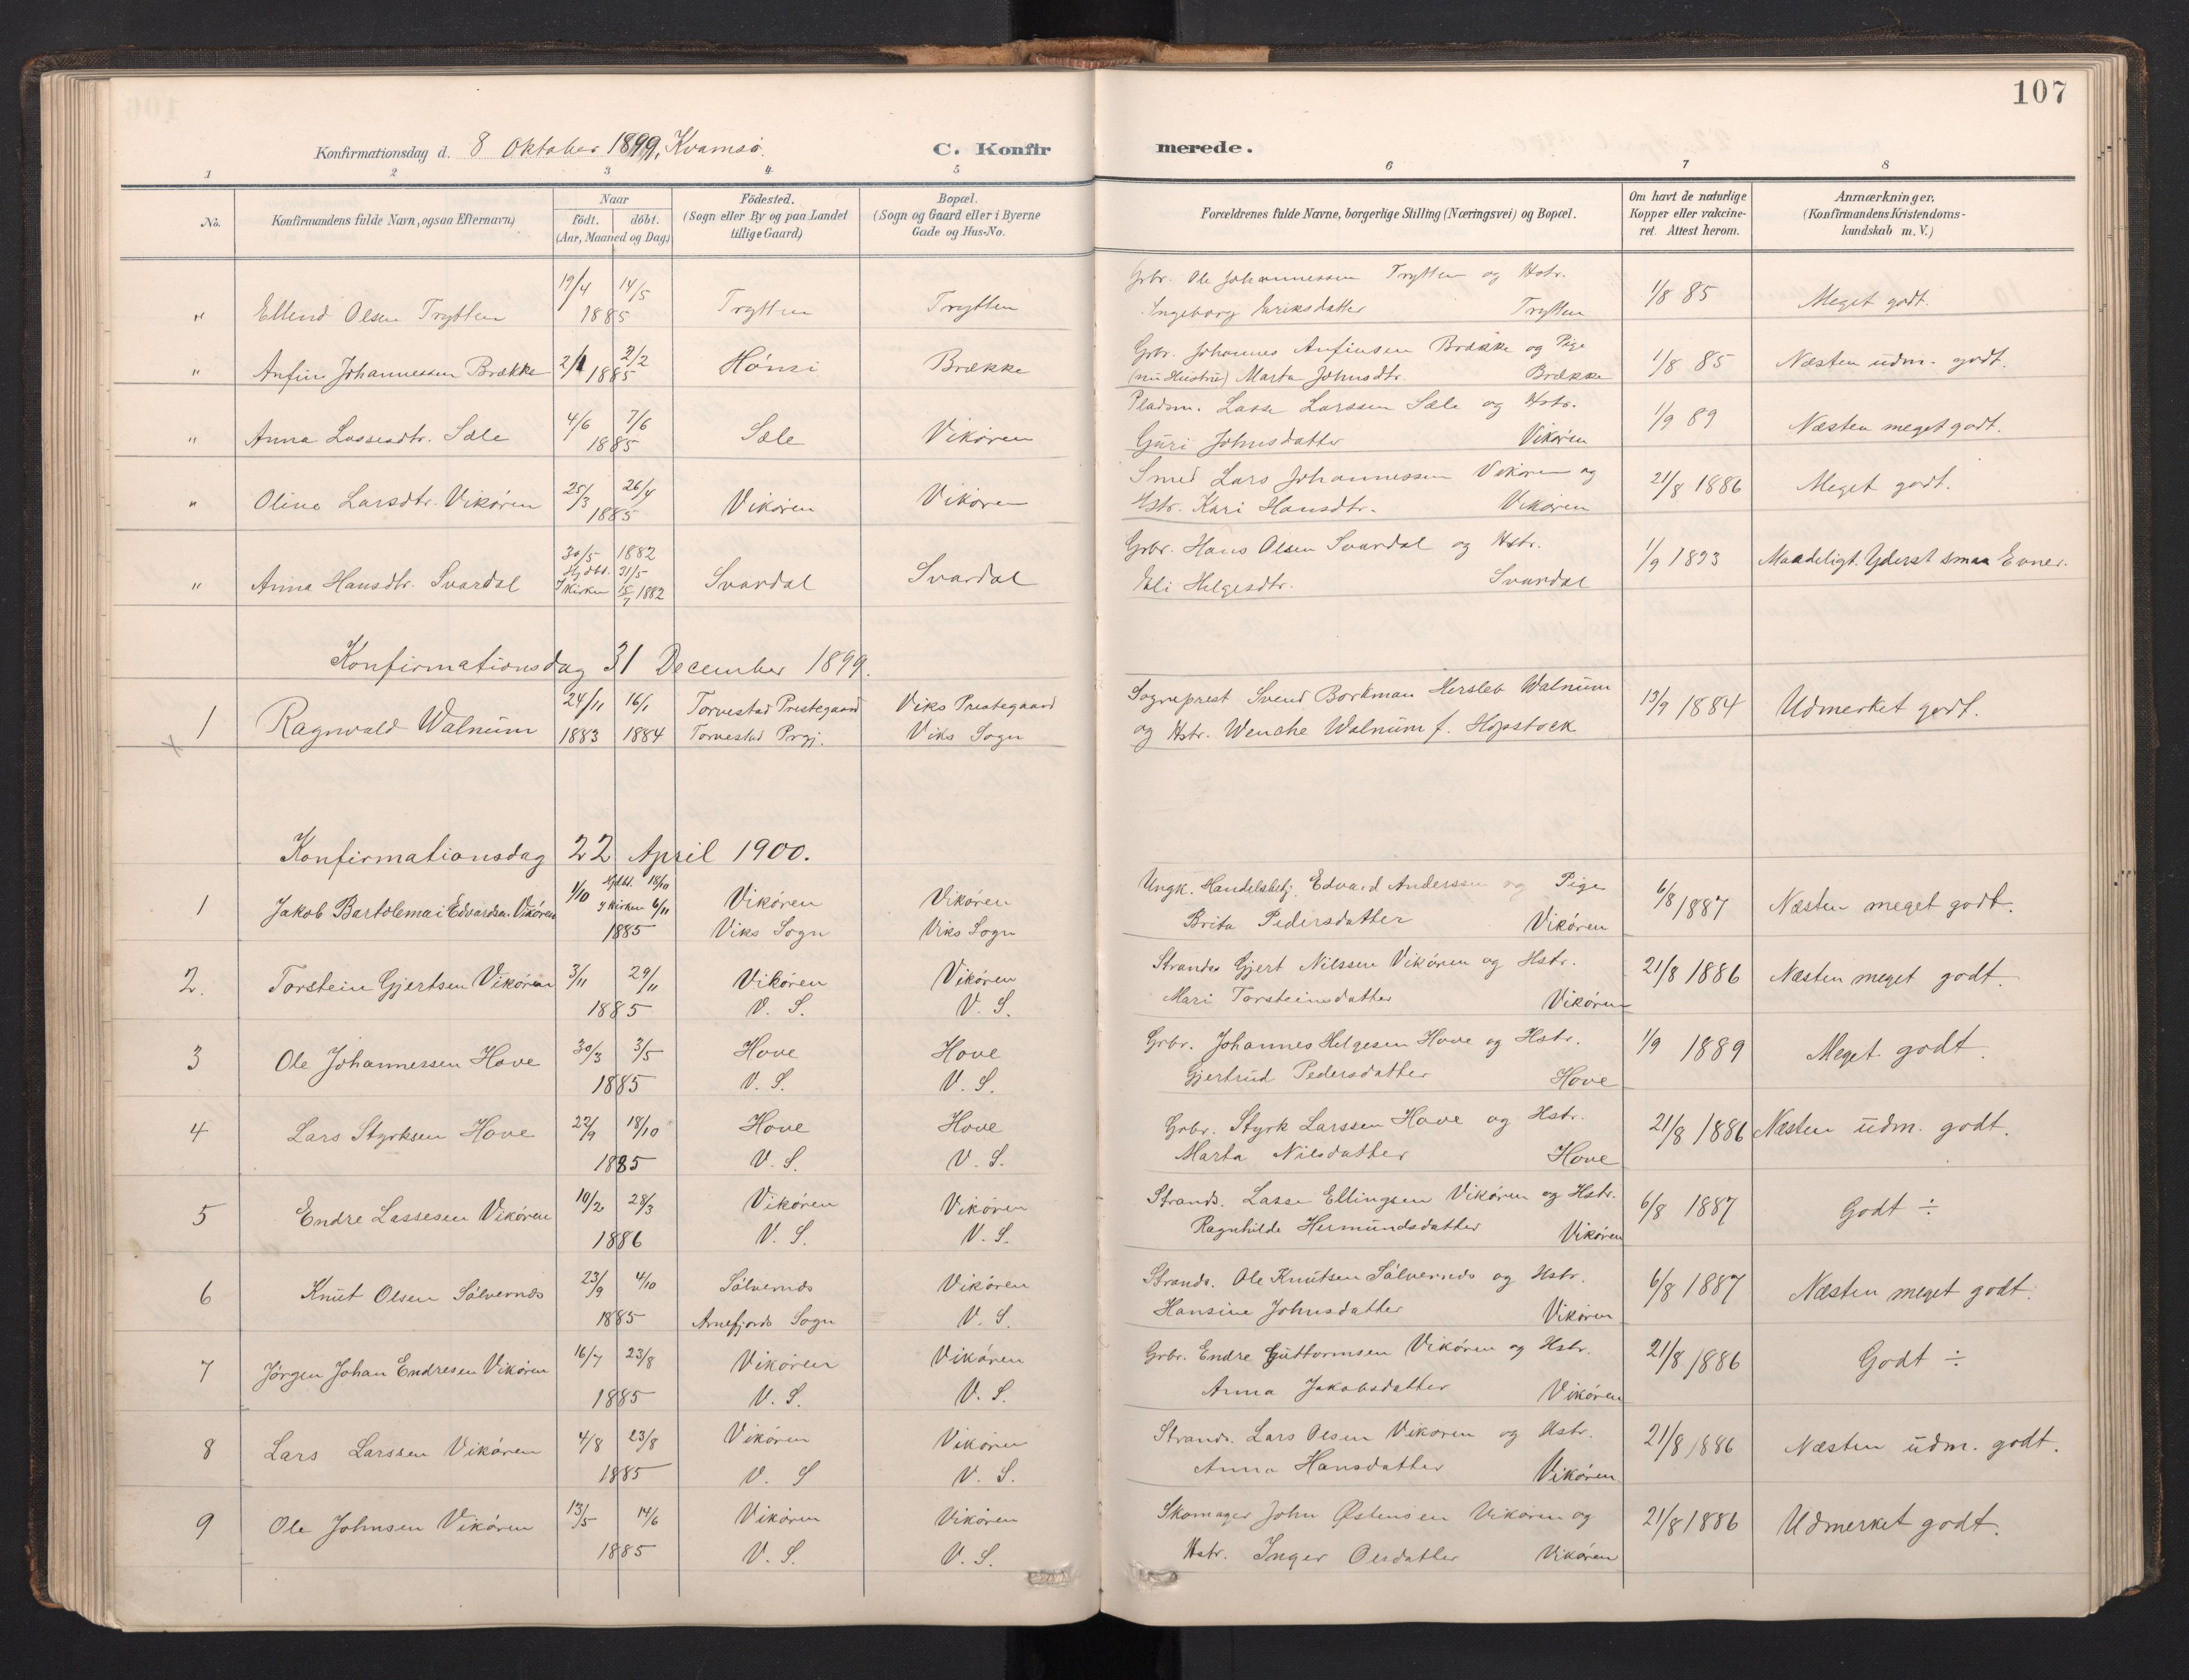 107
Konfirmationsdag d. 8 Oktober 1899, Kvamsø.
C. Konfirmerede.
1 2 3 4 5 6 7 8
No.
Konfirmandens fulde Navn, ogsaa Efternavn)
Naar
födt. döbt.
(Aar, Maaned og Dag)
Födested.
(Sogn eller By og paa Landet
tillige Gaard)
Bopæl.
(Sogn og Gaard eller i Byerne
Gade og Hus-No.
Forældrenes fulde Navne, borgerlige Stilling (Næringsvei) og Bopæl.
Om havt de naturlige
Kopper eller vakcine-
ret. Attest herom.
Anmærkninger,
(Konfirmandens Kristendoms-
kundskab m. V.)
" Ellend Olsen Trytten 19/4 14/5 1885 Trytten Trytten
Grbr. Ole Johannessen Trytten og Hstr.
Ingeborg Eriksdatter Trytten
1/8 85 Meget godt.
" Anfin Johannessen Brække 2/1 2/2 1885 Hönsi Brække
Grbr. Johannes Anfinsen Brække og Pige
(nu Hustru) Marta Johnsdtr. Brække
1/8 85 Næsten udm. godt.
" Anna Lassesdtr. Sæle 4/6 7/6 1885 Sæle Vikören
Pladsm. Lasse Larssen Sæle og Hstr.
Guri Johnsdatter Vikören
1/9 89 Næsten meget godt.
" Oline Larsdtr. Vikören 25/3 26/4 1885 Vikören Vikören
Smed Lars Johannessen Vikören og
Hstr. Kari Hansdtr. Vikören
21/8 1886 Meget godt.
" Anna Hansdtr. Svardal 30/5 1882 Hjdbt. 31/5 I Kirken 15/7 1882 Svardal Svardal
Grbr. Hans Olsen Svardal og Hstr.
Eli Helgesdtr. Svardal
1/9 1893 Maadeligt. Yderst smaa Evner.
Konfirmationsdag 31 December 1899.
1 Ragnvald Walnum 24/11 1883 16/1 1884 Torvestad Prestegaard Viks Prestegaard
Torvestad Prgj. Viks Sogn
Sogneprest Svend Borkman Hersleb Walnum
og Hstr. Wenche Walnum f. Hopstock
13/9 1884 Udmerket godt.
Konfirmationsdag 22 April 1900.
1 Jakob Bartolemai Edvardsen Vikören 1/10 Hjdbt. 18/10 I Kirken 6/11 1885 Vikören Vikören
Viks Sogn Viks Sogn
Ungk. Handelsbetj. Edvard Anderssen og Pige
Brita Pedersdatter Vikören
6/8 1887 Næsten meget godt.
2. Torstein Gjertsen Vikören 3/11 29/11 1885 Vikören V. S. Vikören V. S.
Strands. Gjert Nilssen Vikören og Hstr.
Mari Torsteinsdatter Vikören
21/8 1886 Næsten meget godt.
3 Ole Johannessen Hove 30/3 3/5 1885 Hove V. S. Hove V. S.
Grbr. Johannes Helgesen Hove og Hstr.
Gjertrud Pedersdatter Hove
1/9 1889 Meget godt.
4 Lars Styrksen Hove 22/9 18/10 1885 Hove V. S. Hove V. S.
Grbr. Styrk Larssen Hove og Hstr.
Marta Nilsdatter Hove
21/8 1886 Næsten udm. godt.
5 Endre Lassesen Vikören 10/2 28/3 1886 Vikören V. S. Vikören V. S.
Strands. Lasse Ellingsen Vikören og Hstr.
Ragnhilde Hermundsdatter Vikören
6/8 1887 Godt ÷
6 Knut Olsen Sålvernes 23/9 4/10 1885 Sålvernes Arnefjords Sogn Vikören V. S.
Strands. Ole Knutsen Sålvernes og Hstr.
Hansine Johnsdatter Vikören
6/8 1887 Næsten meget godt.
7 Jörgen Johan Endresen Vikören 16/7 23/8 1885 Vikören V. S. Vikören V. S.
Grbr. Endre Guttormsen Vikören og Hstr.
Anna Jakobsdatter Vikören
21/8 1886 Godt ÷
8 Lars Larssen Vikören 4/8 23/8 1885 Vikören V. S Vikören V. S.
Strands. Lars Olsen Vikören og Hstr.
Anna Hansdatter Vikören
21/8 1886 Næsten udm. godt.
9 Ole Johnsen Vikören 13/5 14/6 1885 Vikören V. S. Vikören V. S.
Skomager John Østensen Vikören og
Hstr. Inger Olsdatter Vikören
21/8 1886 Udmerket godt.